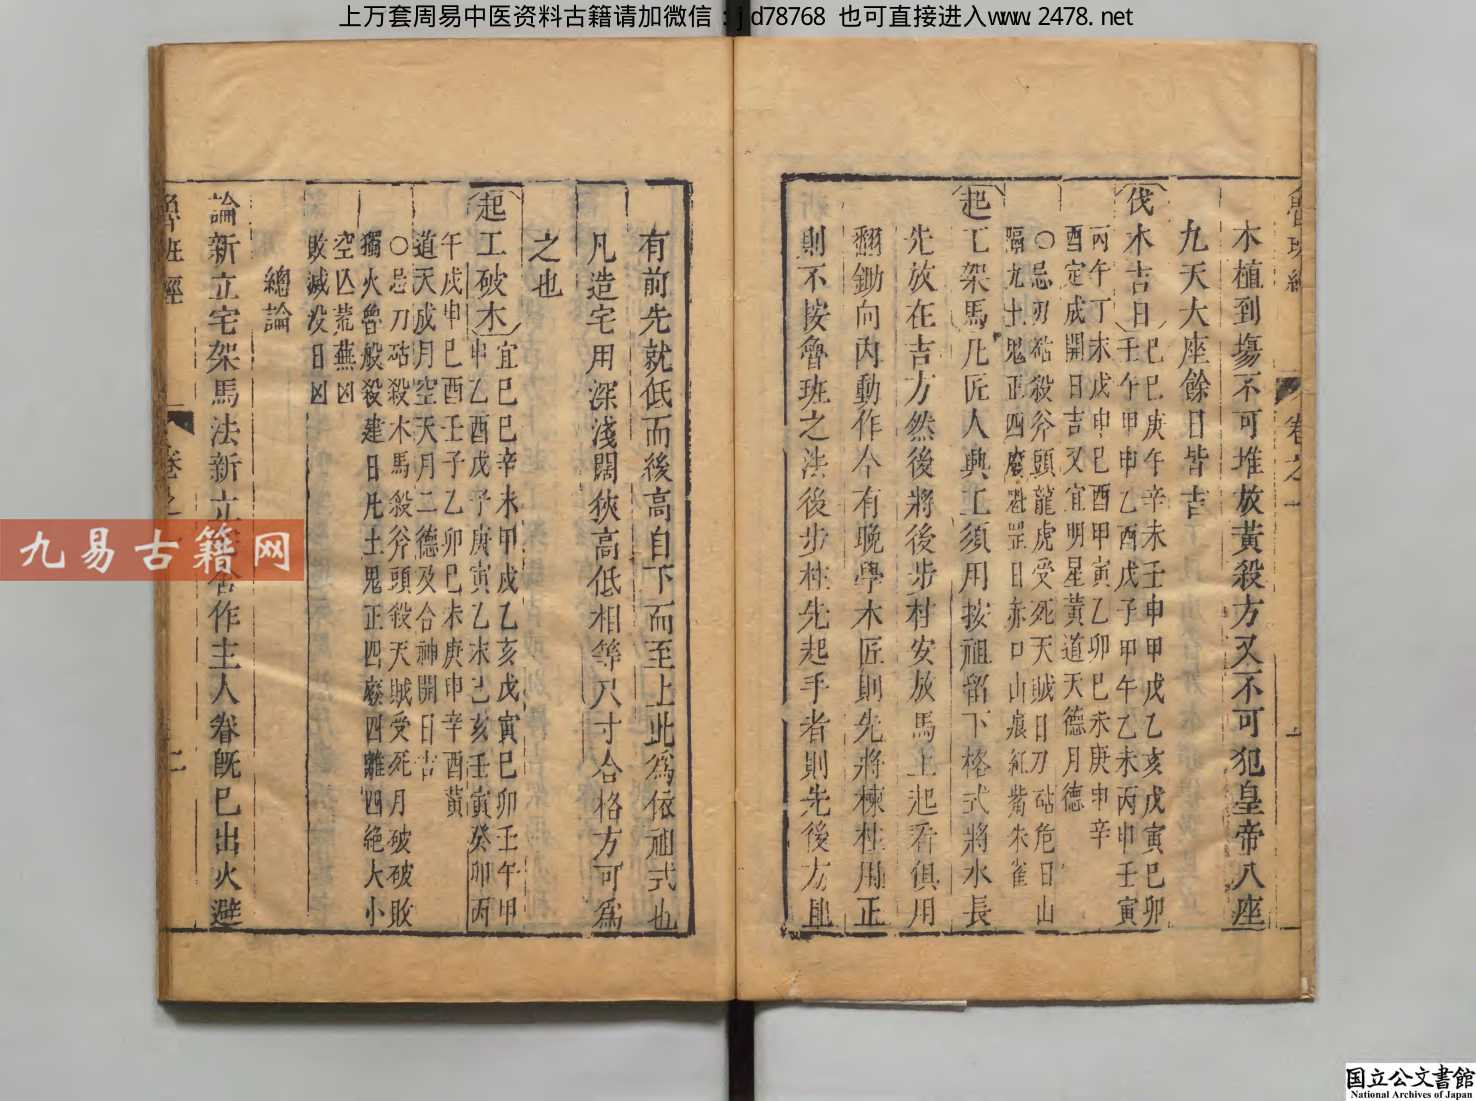 上万套周易中医资料古籍请加微信：jd78768 也可直接进入www.2478.net
魯班經
卷之一
木植到塲不可堆放黃殺方又不可犯皇帝八座
九天大座餘日皆吉
伐木吉日
己巳庚午辛未壬申甲戌乙亥戊寅己卯
壬午甲申乙酉戊子甲午乙未丙申壬寅
丙午丁未戊申己酉甲寅乙卯己未庚申辛
酉定成開日吉又宜明星黃道天德月德
○忌刃砧殺斧頭龍虎受死天賊日刀砧危日山
隔九土鬼正四廢魁罡日赤口山痕紅觜朱雀
起工架馬凡匠人興工須用按祖留下格式將水長
先放在吉方然後將後步柱安放馬上起看俱用
翻鋤向內動作今有晚學木匠則先將棟柱用正
則不按魯班之法後步柱先起手者則先後方且
有前先就低而後高自下而至上此爲依祖式也
凡造宅用深淺闊狹高低相等尺寸合格方可爲
之也
起工破木
宜己巳辛未甲戌乙亥戊寅己卯壬午甲
申乙酉戊子庚寅乙未己亥壬寅癸卯丙
午戊申己酉壬子乙卯己未庚申辛酉黃
道天成月空天月二德及合神開日吉
○忌刀砧殺木馬殺斧頭殺天賊受死月破破敗
獨火魯般殺建日凡土鬼正四廢四離四絕大小
空亡荒蕪凶
敗滅没日凶
總論
論新立宅架馬法新立宅舍作主人眷旣已出火避
魯班經
卷之一
九易古籍网
国立公文書館
National Archives of Japan